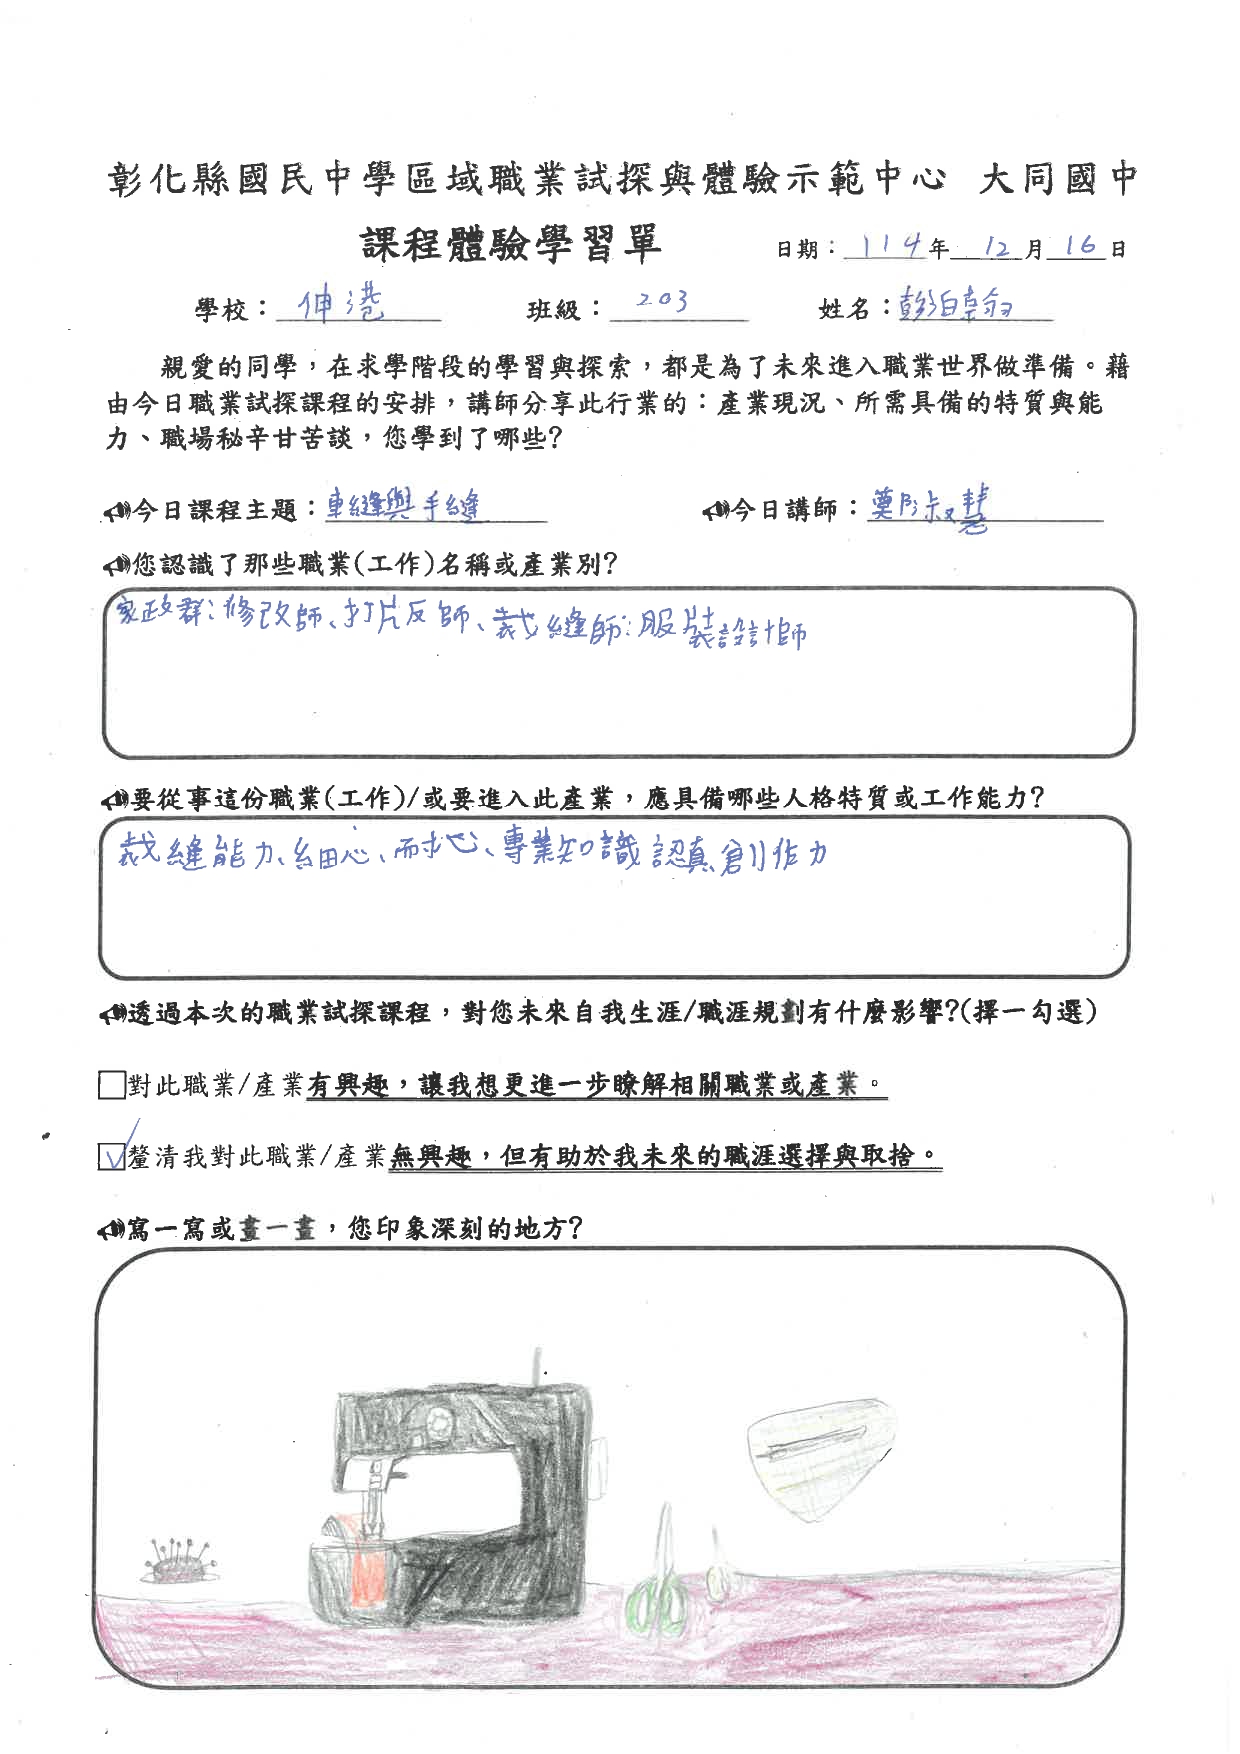 彰化縣國民中學區域職業試探與體驗示範中心 大同國中
課程體驗學習單
日期：114年12月16日
學校：伸港 班級：203 姓名：彭
親愛的同學，在求學階段的學習與探索，都是為了未來進入職業世界做準備。藉
由今日職業試探課程的安排，講師分享此行業的：產業現況、所需具備的特質與能
力、職場秘辛甘苦談，您學到了哪些?
今日課程主題：車縫與手縫 今日講師：叔慧
您認識了那些職業(工作)名稱或產業別?
家政群：修改師、打片反師、裁縫師：服裝設計師
要從事這份職業(工作)/或要進入此產業，應具備哪些人格特質或工作能力?
裁縫能力、細心、耐心、專業知識 認真 創作力
透過本次的職業試探課程，對您未來自我生涯/職涯規劃有什麼影響?(擇一勾選)
□對此職業/產業有興趣，讓我想更進一步瞭解相關職業或產業。
☑釐清我對此職業/產業無興趣，但有助於我未來的職涯選擇與取捨。
寫一寫或畫一畫，您印象深刻的地方?